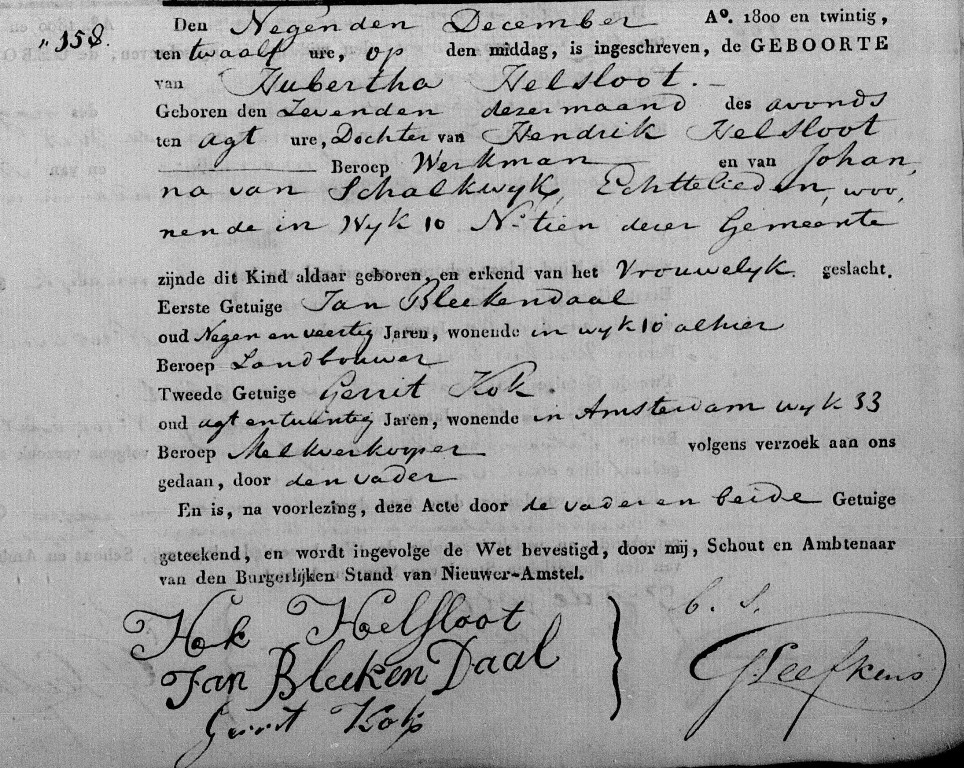 " 158.
Den Negenden December Aº. 1800 en twintig,
ten twaalf ure, op den middag, is ingeschreven, de GEBOORTE
van Hubertha Helsloot.
Geboren den Zevenden dezer maand des avonds
ten agt ure, Dochter van Hendrik Helsloot
Beroep Werkman en van Johan,
na van Schalkwyk, Echtelieden, woo,
nende in Wyk 10 Nº tien dezer Gemeente
zijnde dit Kind aldaar geboren, en erkend van het Vrouwelyk. geslacht.
Eerste Getuige Jan Bleekendaal
oud Negen en veertig Jaren, wonende in wyk 10 alhier
Beroep Landbouwer
Tweede Getuige Gerrit Kok.
oud agt en twintig Jaren, wonende in Amsterdam wyk 33
Beroep Melkverkoper volgens verzoek aan ons
gedaan, door den vader
En is, na voorlezing, deze Acte door de vader en beide Getuige
geteekend, en wordt ingevolge de Wet bevestigd, door mij, Schout en Ambtenaar
van den Burgerlijken Stand van Nieuwer-Amstel.
Hek Helsloot
Jan Bleeken Daal
Gerrit Kok
b. s.
GLeefkens